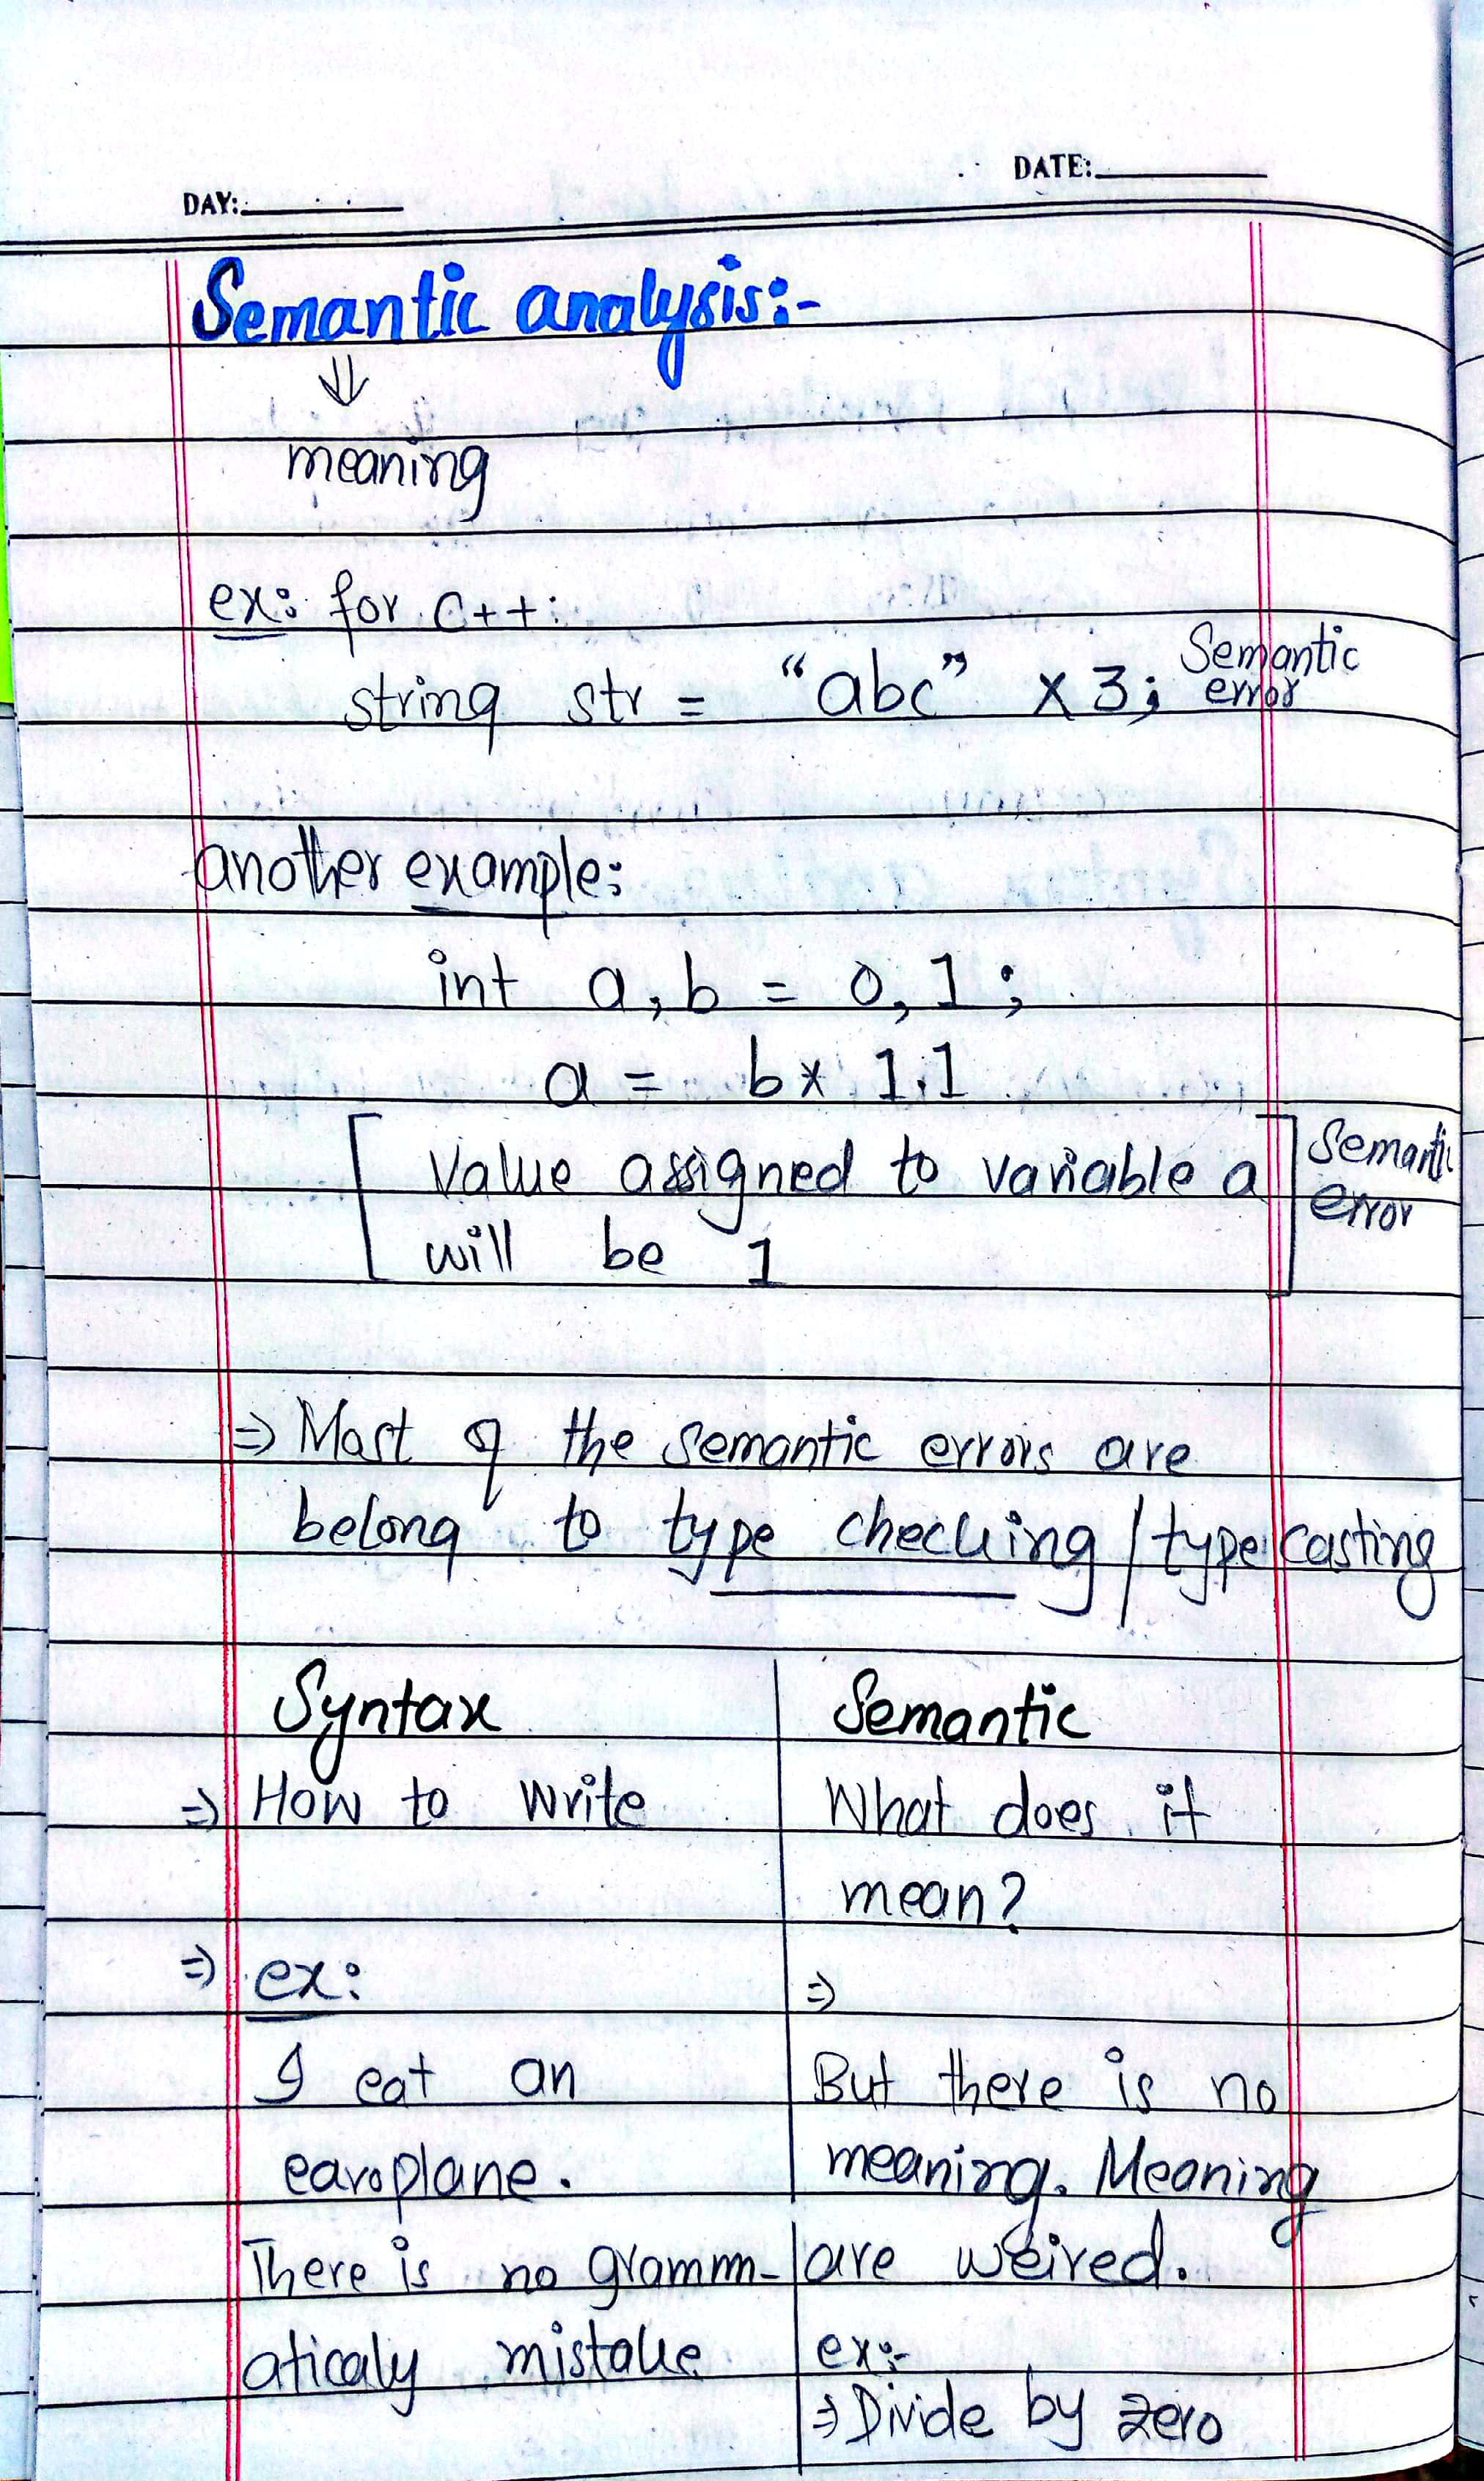 DATE:
DAY:
Semantic analysis:-
⇓
meaning
ex: for c++:
string str = "abc" × 3; Semantic error
another example:
int a, b = 0, 1;
a = b * 1.1
[Value assigned to variable a
will be 1] Semantic error
⇒ Most of the semantic errors are
belong to type checking / type casting
Syntax | Semantic
⇒ How to write | What does it
mean?
⇒ ex: | ⇒
I eat an | But there is no
earoplane. | meaning. Meaning
There is no gramm- | are weired.
aticaly mistake | ex:-
⇒ Divide by zero